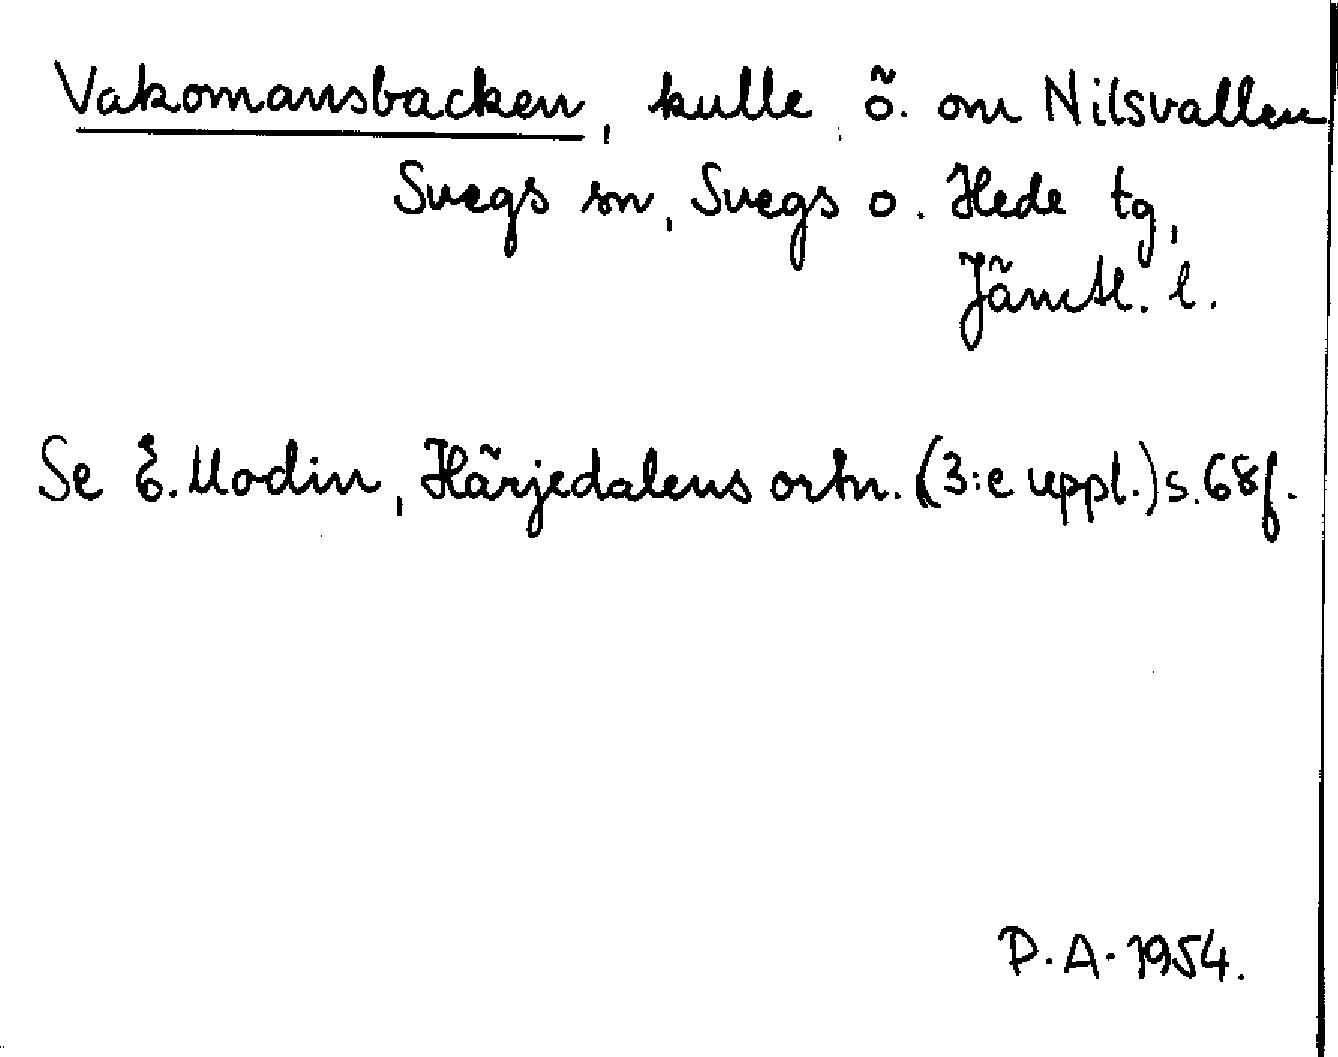 Vakomansbacken, kulle ö. om Nilsvallen
Svegs sn, Svegs o. Hede tg,
Jämtl. l.
Se E. Modin, Härjedalens ortn. (3:e uppl.) s. 68 f.
P. A. 1954.